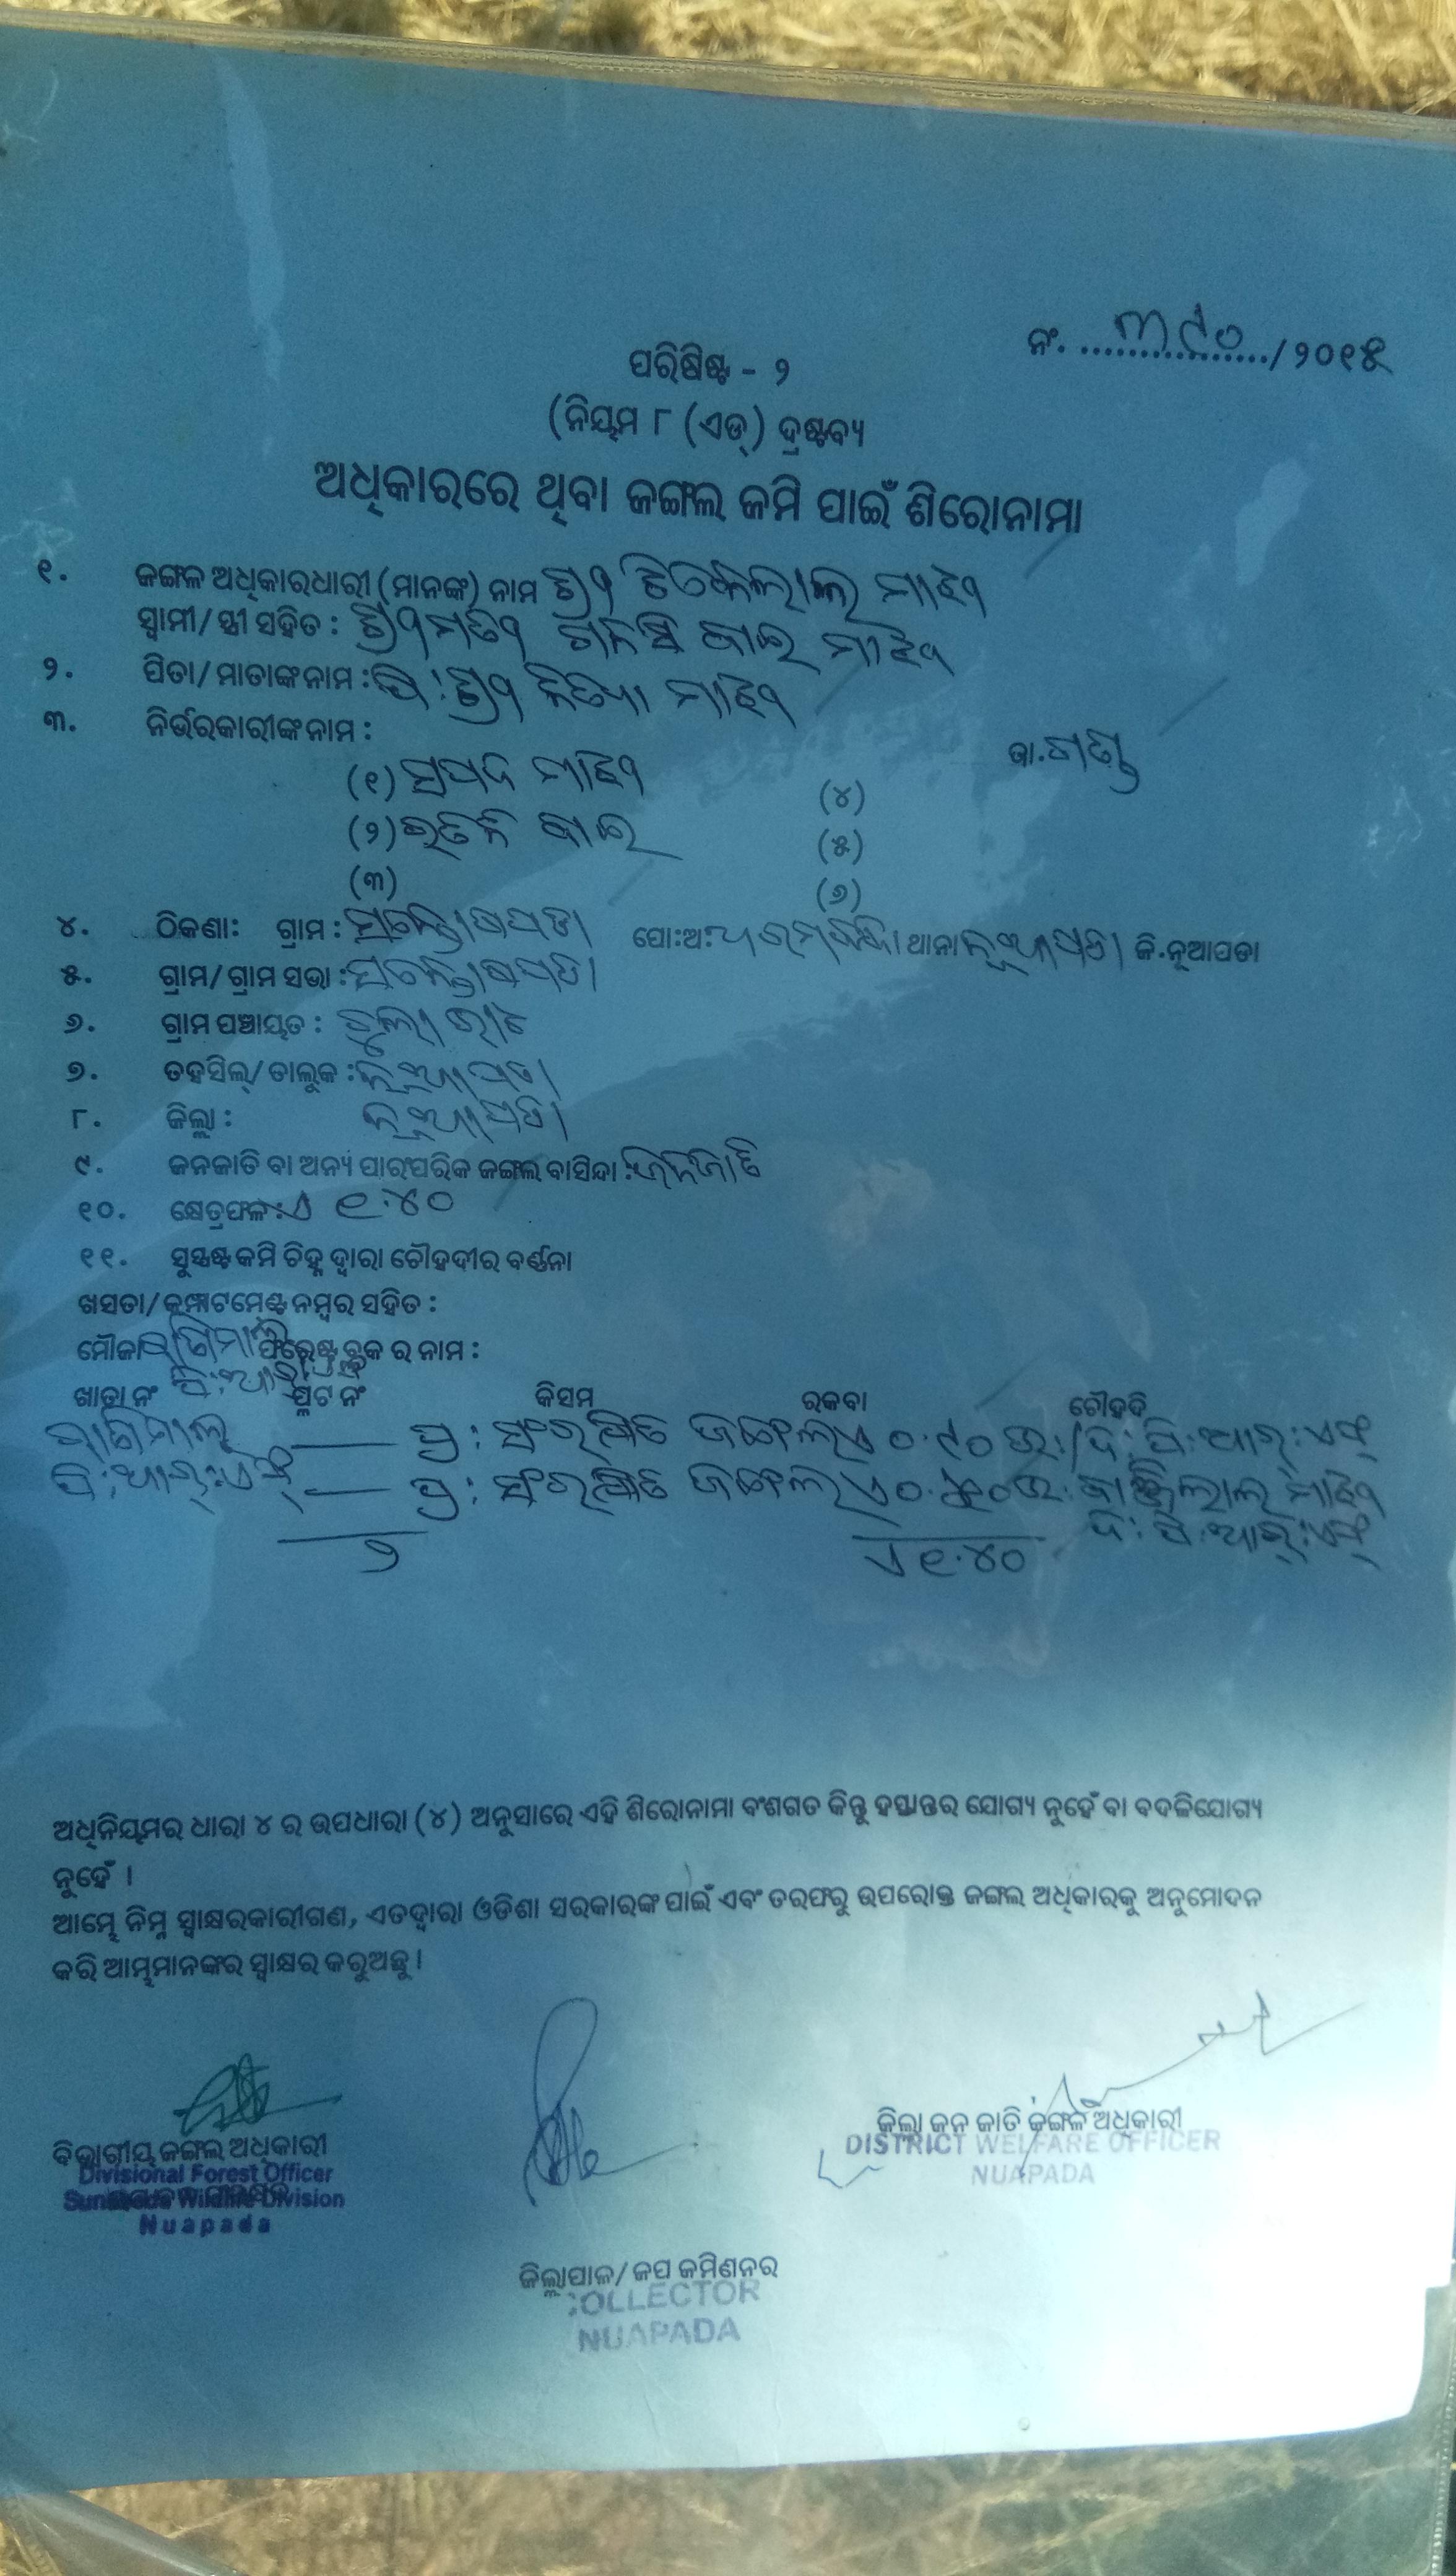 ନଂ. ୩୯୦ /୨୦୧୫
ପରିଷିଷ୍ଟ - ୨
(ନିୟମ ୮ (ଏଚ୍) ଦ୍ରଷ୍ଟବ୍ୟ
ଅଧିକାରରେ ଥିବା ଜଙ୍ଗଲ ଜମି ପାଇଁ ଶିରୋନାମା
୧. ଜଙ୍ଗଳ ଅଧିକାରଧାରୀ (ମାନଙ୍କ) ନାମ ଶ୍ରୀ ଟିକେଲାଲ ମାଝୀ
ସ୍ଵାମୀ/ ସ୍ତ୍ରୀ ସହିତ : ଶ୍ରୀମତୀ ବାଇ ମାଝୀ
୨. ପିତା/ ମାତାଙ୍କ ନାମ : ପି: ଶ୍ରୀ ମାଝୀ
୩. ନିର୍ଭରକାରୀଙ୍କ ନାମ :
ଜା. ଗଣ୍ଡ
(୧) ମାଝୀ (୪)
(୨) ବାଇ (୫)
(୩) (୬)
୪. ଠିକଣା: ଗ୍ରାମ : ସନ୍ତୋଷପଡା ପୋ:ଅ: ଥାନା ନୂଆପଡା ଜି.ନୂଆପଡା
୫. ଗ୍ରାମ/ ଗ୍ରାମ ସଭା : ସନ୍ତୋଷପଡା
୬. ଗ୍ରାମ ପଞ୍ଚାୟତ :
୭. ତହସିଲ୍/ ତାଲୁକ : ନୂଆପଡା
୮. ଜିଲ୍ଲା : ନୂଆପଡା
୯. ଜନଜାତି ବା ଅନ୍ୟ ପାରଂପରିକ ଜଙ୍ଗଲ ବାସିନ୍ଦା : ଜନଜାତି
୧୦. କ୍ଷେତ୍ରଫଳ : ଏ ୧.୪୦
୧୧. ସୁସ୍ପଷ୍ଟ ଜମି ଚିହ୍ନ ଦ୍ଵାରା ଚୌହଦୀର ବର୍ଣ୍ଣନା
ଖସଡା/ କମ୍ପାଟମେଣ୍ଟ ନମ୍ବର ସହିତ :
ମୌଜା ଫରେଷ୍ଟ ବ୍ଲକ ର ନାମ :
ଖାତା ନଂ ପ୍ଳଟ ନଂ କିସମ ରକବା ଚୌହଦି
— ପ୍ର: ସଂରକ୍ଷିତ ଜଙ୍ଗଲ ଏ ୦.୯୦ ଉ:/ଦ: ପି:ଆର୍:ଏଫ୍
ପି:ଆର୍:ଏଫ୍ — ପ୍ର: ସଂରକ୍ଷିତ ଜଙ୍ଗଲ ଏ ୦.୫୦ ଉ: ମାଝୀ
ଦ: ପି:ଆର୍:ଏଫ୍
୨ ଏ ୧.୪୦
ଅଧିନିୟମର ଧାରା ୪ ର ଉପଧାରା (୪) ଅନୁସାରେ ଏହି ଶିରୋନାମା ବଂଶଗତ କିନ୍ତୁ ହସ୍ତାନ୍ତର ଯୋଗ୍ୟ ନୁହେଁ ବା ବଦଳିଯୋଗ୍ୟ
ନୁହେଁ ।
ଆମ୍ଭେ ନିମ୍ନ ସ୍ଵାକ୍ଷରକାରୀଗଣ, ଏତଦ୍ଵାରା ଓଡିଶା ସରକାରଙ୍କ ପାଇଁ ଏବଂ ତରଫରୁ ଉପରୋକ୍ତ ଜଙ୍ଗଲ ଅଧିକାରକୁ ଅନୁମୋଦନ
କରି ଆମ୍ଭମାନଙ୍କର ସ୍ଵାକ୍ଷର କରୁଅଛୁ ।
ବିଭାଗୀୟ ଜଙ୍ଗଲ ଅଧିକାରୀ
Divisional Forest Officer
Sunabeda Wildlife Division
Nuapada
ଜିଲ୍ଲା ଜନ ଜାତି ଜଙ୍ଗଳ ଅଧିକାରୀ
DISTRICT WELFARE OFFICER
NUAPADA
ଜିଲ୍ଲାପାଳ/ ଜପ କମିଶନର
COLLECTOR
NUAPADA